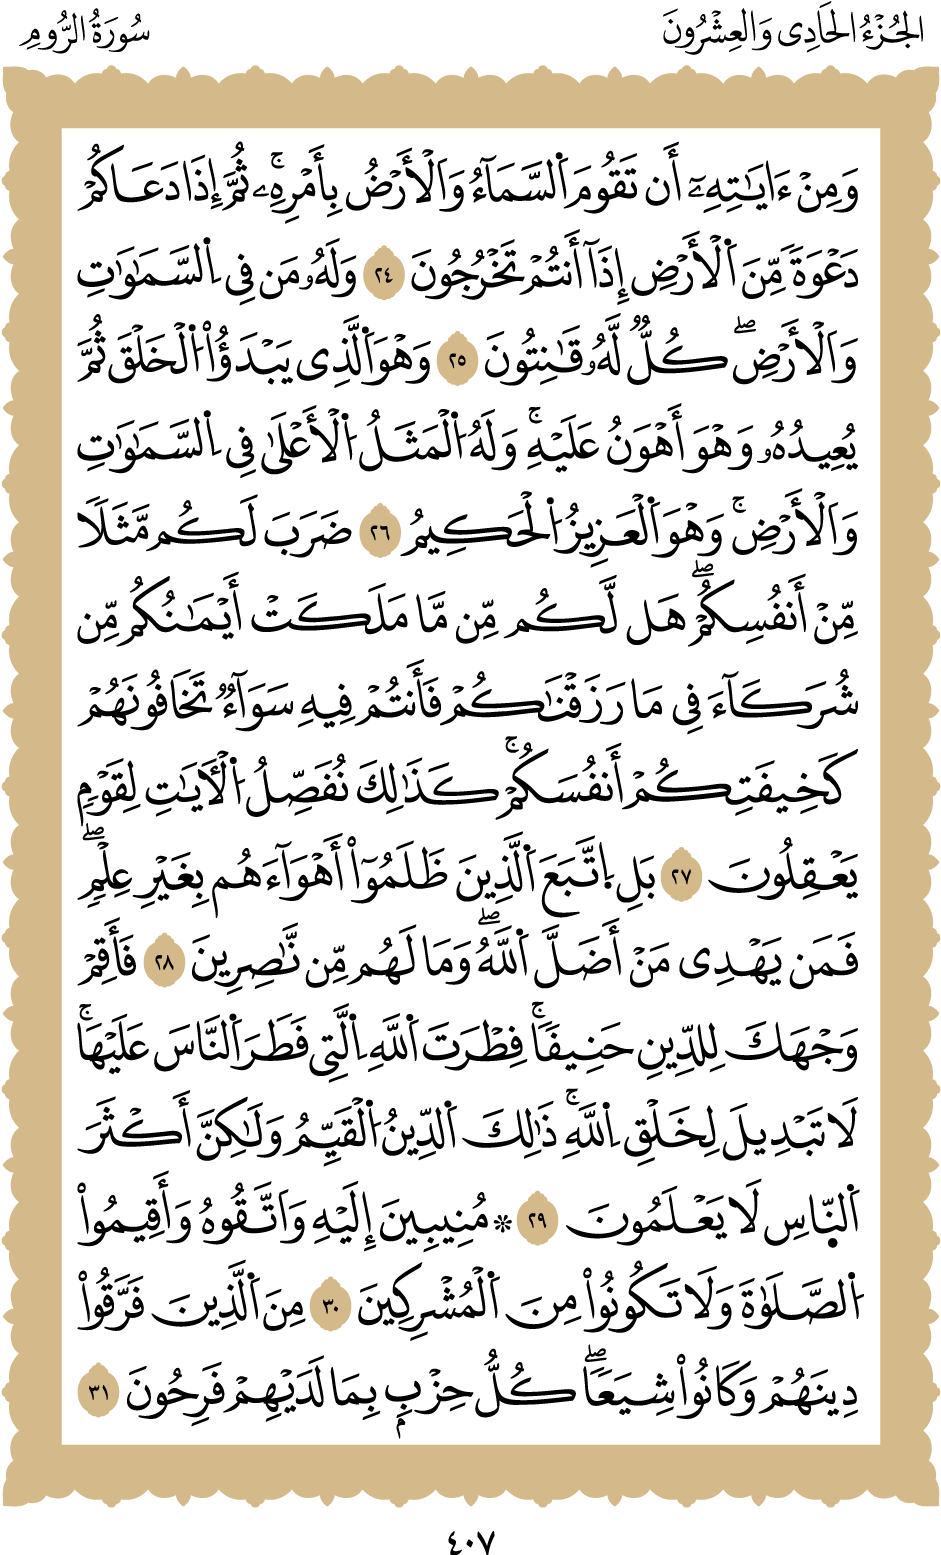 الجُزْءُ الحَادِى وَالعِشْرُونَ
سُورَةُ الرُّومِ
وَمِنْ ءَايَٰتِهِۦٓ أَن تَقُومَ اَ۬لسَّمَآءُ وَالْأَرْضُ بِأَمْرِهِۦۚ ثُمَّ إِذَا دَعَاكُمْ
دَعْوَةٗ مِّنَ اَ۬لْأَرْضِ إِذَآ أَنتُمْ تَخْرُجُونَ ٢٤ وَلَهُۥ مَن فِى اِ۬لسَّمَٰوَٰتِ
وَالْأَرْضِۖ كُلّٞ لَّهُۥ قَٰنِتُونَ ٢٥ وَهْوَ اَ۬لَّذِى يَبْدَؤُاْ اُ۬لْخَلْقَ ثُمَّ
يُعِيدُهُۥ وَهْوَ أَهْوَنُ عَلَيْهِۚ وَلَهُ اُ۬لْمَثَلُ اُ۬لْأَعْلَىٰ فِى اِ۬لسَّمَٰوَٰتِ
وَالْأَرْضِۚ وَهْوَ اَ۬لْعَزِيزُ اُ۬لْحَكِيمُ ٢٦ ضَرَبَ لَكُم مَّثَلٗا
مِّنْ أَنفُسِكُمْۖ هَل لَّكُم مِّن مَّا مَلَكَتْ أَيْمَٰنُكُم مِّن
شُرَكَآءَ فِى مَا رَزَقْنَٰكُمْ فَأَنتُمْ فِيهِ سَوَآءٞ تَخَافُونَهُمْ
كَخِيفَتِكُمْ أَنفُسَكُمْۚ كَذَٰلِكَ نُفَصِّلُ اُ۬لْأٓيَٰتِ لِقَوْمٖ
يَعْقِلُونَ ٢٧ بَلِ اِ۪تَّبَعَ اَ۬لَّذِينَ ظَلَمُوٓاْ أَهْوَآءَهُم بِغَيْرِ عِلْمٖۖ
فَمَن يَهْدِى مَنْ أَضَلَّ اَ۬للَّهُۖ وَمَا لَهُم مِّن نَّٰصِرِينَ ٢٨ فَأَقِمْ
وَجْهَكَ لِلدِّينِ حَنِيفٗاۚ فِطْرَتَ اَ۬للَّهِ اِ۬لَّتِى فَطَرَ اَ۬لنَّاسَ عَلَيْهَاۚ
لَا تَبْدِيلَ لِخَلْقِ اِ۬للَّهِۚ ذَٰلِكَ اَ۬لدِّينُ اُ۬لْقَيِّمُ وَلَٰكِنَّ أَكْثَرَ
اَ۬لنّ۪اسِ لَا يَعْلَمُونَ ٢٩ ۞ مُنِيبِينَ إِلَيْهِ وَاتَّقُوهُ وَأَقِيمُواْ
اُ۬لصَّلَوٰةَ وَلَا تَكُونُواْ مِنَ اَ۬لْمُشْرِكِينَ ٣٠ مِنَ اَ۬لَّذِينَ فَرَّقُواْ
دِينَهُمْ وَكَانُواْ شِيَعٗاۖ كُلُّ حِزْبِۭ بِمَا لَدَيْهِمْ فَرِحُونَ ٣١
٤٠٧